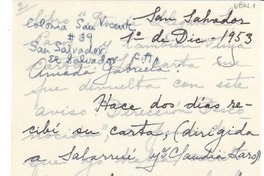 San Salvador
Colonia San Vicente
# 39
1º de Dic - 1953
San Salvador
El Salvador C.A.
Amada Gabriela:
Hace dos días re-
cibí su carta, (dirigida
a Salarrué y Claudia Lars)